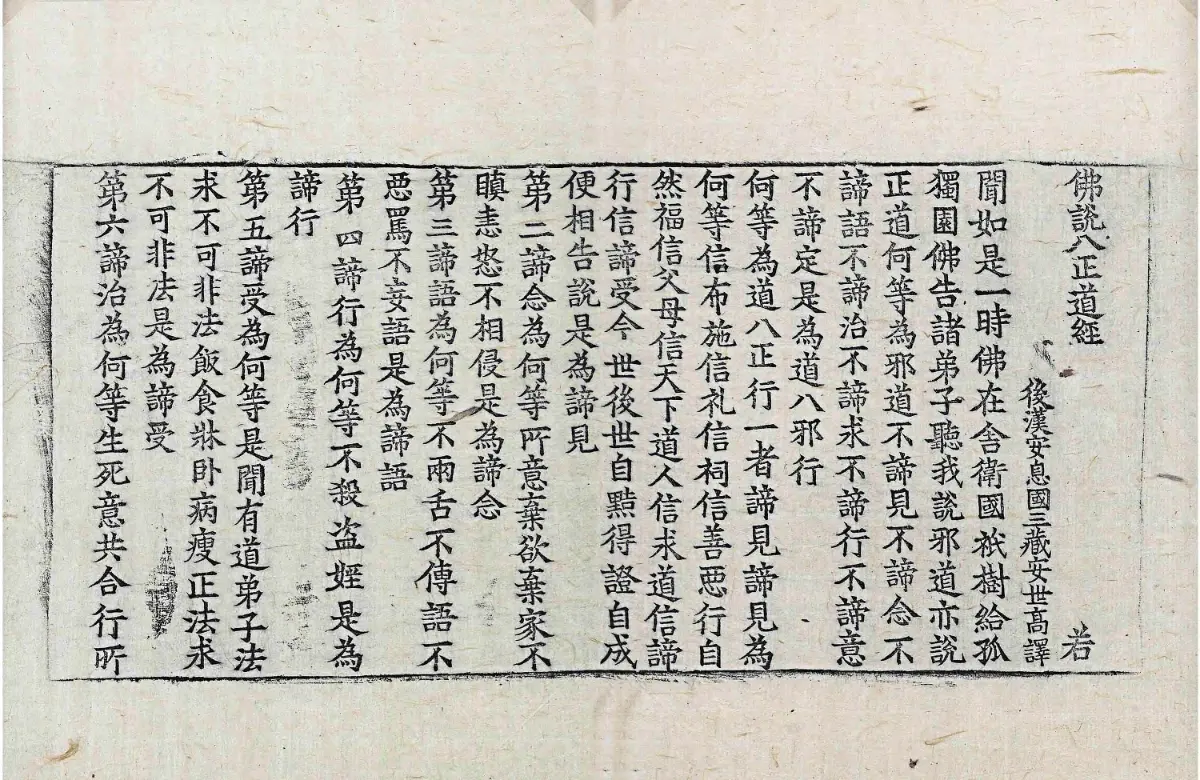 佛說八正道經
若
後漢安息國三藏安世高譯
聞如是一時佛在舍衛國祇樹給孤
獨園佛告諸弟子聽我說邪道亦說
正道何等為邪道不諦見不諦念不
諦語不諦治不諦求不諦行不諦意
不諦定是為道八邪行
何等為道八正行一者諦見諦見為
何等信布施信礼信祠信善惡行自
然福信父母信天下道人信求道信諦
行信諦受今世後世自黠得證自成
便相告說是為諦見
第二諦念為何等所意棄欲棄家不
瞋恚怒不相侵是為諦念
第三諦語為何等不兩舌不傳語不
惡罵不妄語是為諦語
第四諦行為何等不殺盜婬是為
諦行
第五諦受為何等是聞有道弟子法
求不可非法飯食牀卧病瘦正法求
不可非法是為諦受
第六諦治為何等生死意共合行所